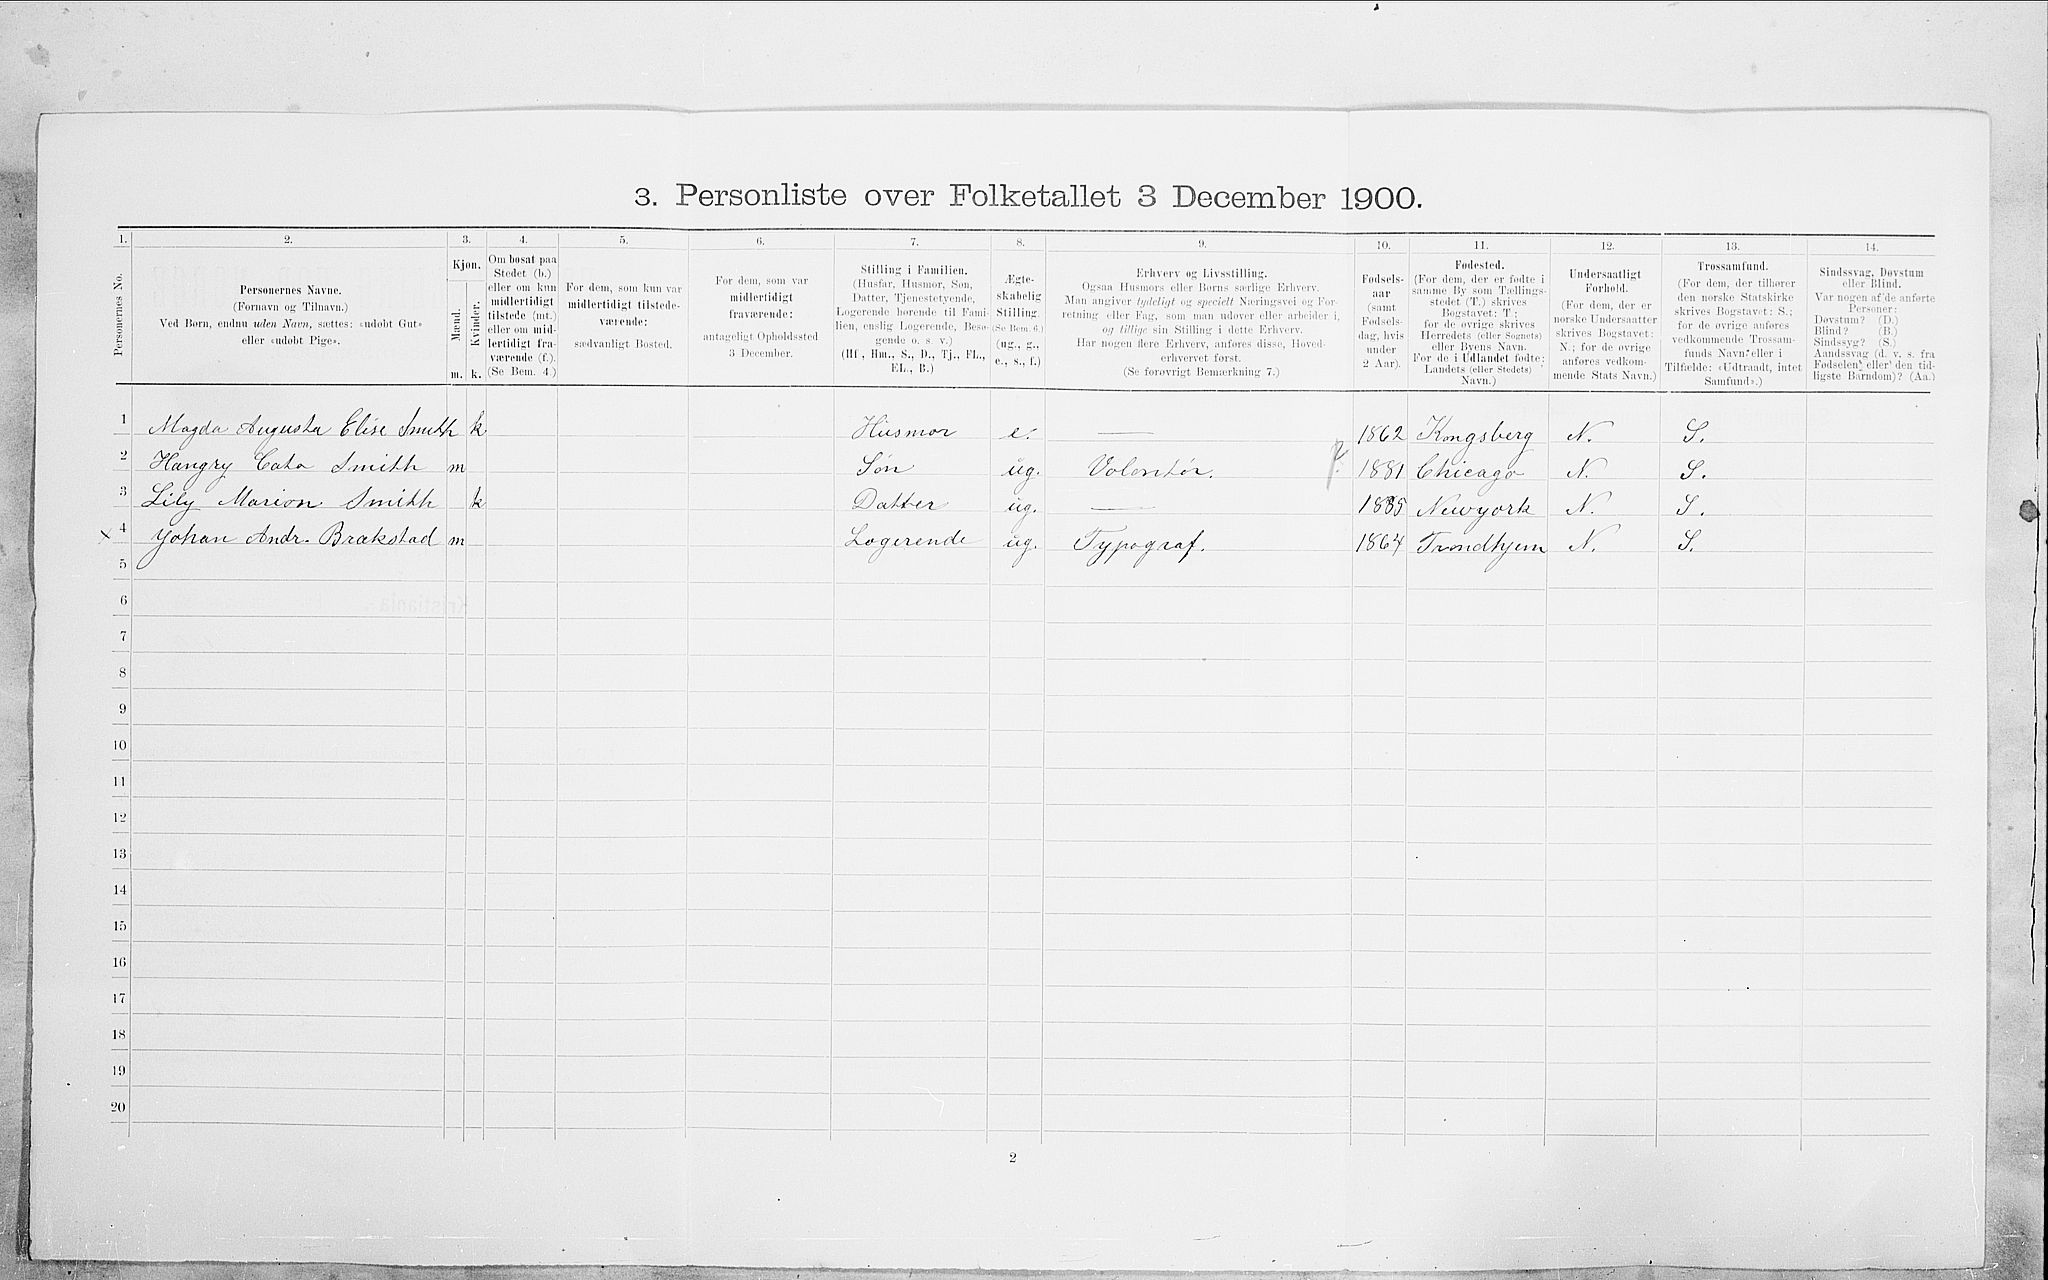 3. Personliste over Folketallet 3 December 1900.
1. 2. 3. 4. 5. 6. 7. 8. 9. 10. 11. 12. 13. 14.
Personernes No.
Personernes Navne.
(Fornavn og Tilnavn.)
Ved Børn, endnu uden Navn, sættes: «udøbt Gut»
eller «udøbt Pige».
Kjøn.
Mænd.
Kvinder.
m. k.
Om bosat paa
Stedet (b.)
eller om kun
midlertidigt
tilstede (mt.)
eller om mid-
lertidigt fra-
værende (f.).
(Se Bem. 4.)
For dem, som kun var
midlertidigt tilstede-
værende:
sædvanligt Bosted.
For dem, som var
midlertidigt
fraværende:
antageligt Opholdssted
3 December.
Stilling i Familien.
(Husfar, Husmor, Søn,
Datter, Tjenestetyende,
Logerende hørende til Fami-
lien, enslig Logerende, Besø-
gende o. s. v.)
(Hf., Hm., S., D., Tj., FL.,
EL., B.)
Ægte-
skabelig
Stilling.
(Se Bem. 6.)
(ug., g.,
e., s., f.)
Erhverv og Livsstilling.
Ogsaa Husmors eller Børns særlige Erhverv.
Man angiver tydeligt og specielt Næringsvei og For-
retning eller Fag, som man udøver eller arbeider i,
og tillige sin Stilling i dette Erhverv.
Har nogen flere Erhverv, anføres disse, Hoved-
erhvervet først.
(Se forøvrigt Bemærkning 7.)
Fødsels-
aar
(samt
Fødsels-
dag, hvis
under
2 Aar).
Fødested.
(For dem, der er fødte i
samme By som Tællings-
stedet (T.) skrives
Bogstavet: T.;
for de øvrige skrives
Herredets (eller Sognets)
eller Byens Navn.
For de i Udlandet fødte:
Landets (eller Stedets)
Navn.)
Undersaatligt
Forhold.
(For dem, der er
norske Undersaatter
skrives Bogstavet:
N.; for de øvrige
anføres vedkom-
mende Stats Navn.)
Trossamfund.
(For dem, der tilhører
den norske Statskirke
skrives Bogstavet: S.;
for de øvrige anføres
vedkommende Trossam-
funds Navn, eller i
Tilfælde: «Udtraadt, intet
Samfund».)
Sindssvag, Døvstum
eller Blind.
Var nogen af de anførte
Personer:
Døvstum? (D.)
Blind? (B.)
Sindssyg? (S.)
Aandssvag (d. v. s. fra
Fødselen eller den tid-
ligste Barndom)? (Aa.)
1 Magda Augusta Elise Smith k Husmor e. — 1862 Kongsberg N. S.
2 Hangry Cato Smith m Søn ug. Volentør. 1881 Chicago N. S.
3 Lily Marion Smith k Datter ug. — 1885 Newyork N. S.
x 4 Johan Andr. Brækstad m Logerende ug. Typograf. 1864 Trondhjem N. S.
5
6
7
8
9
10
11
12
13
14
15
16
17
18
19
20
2